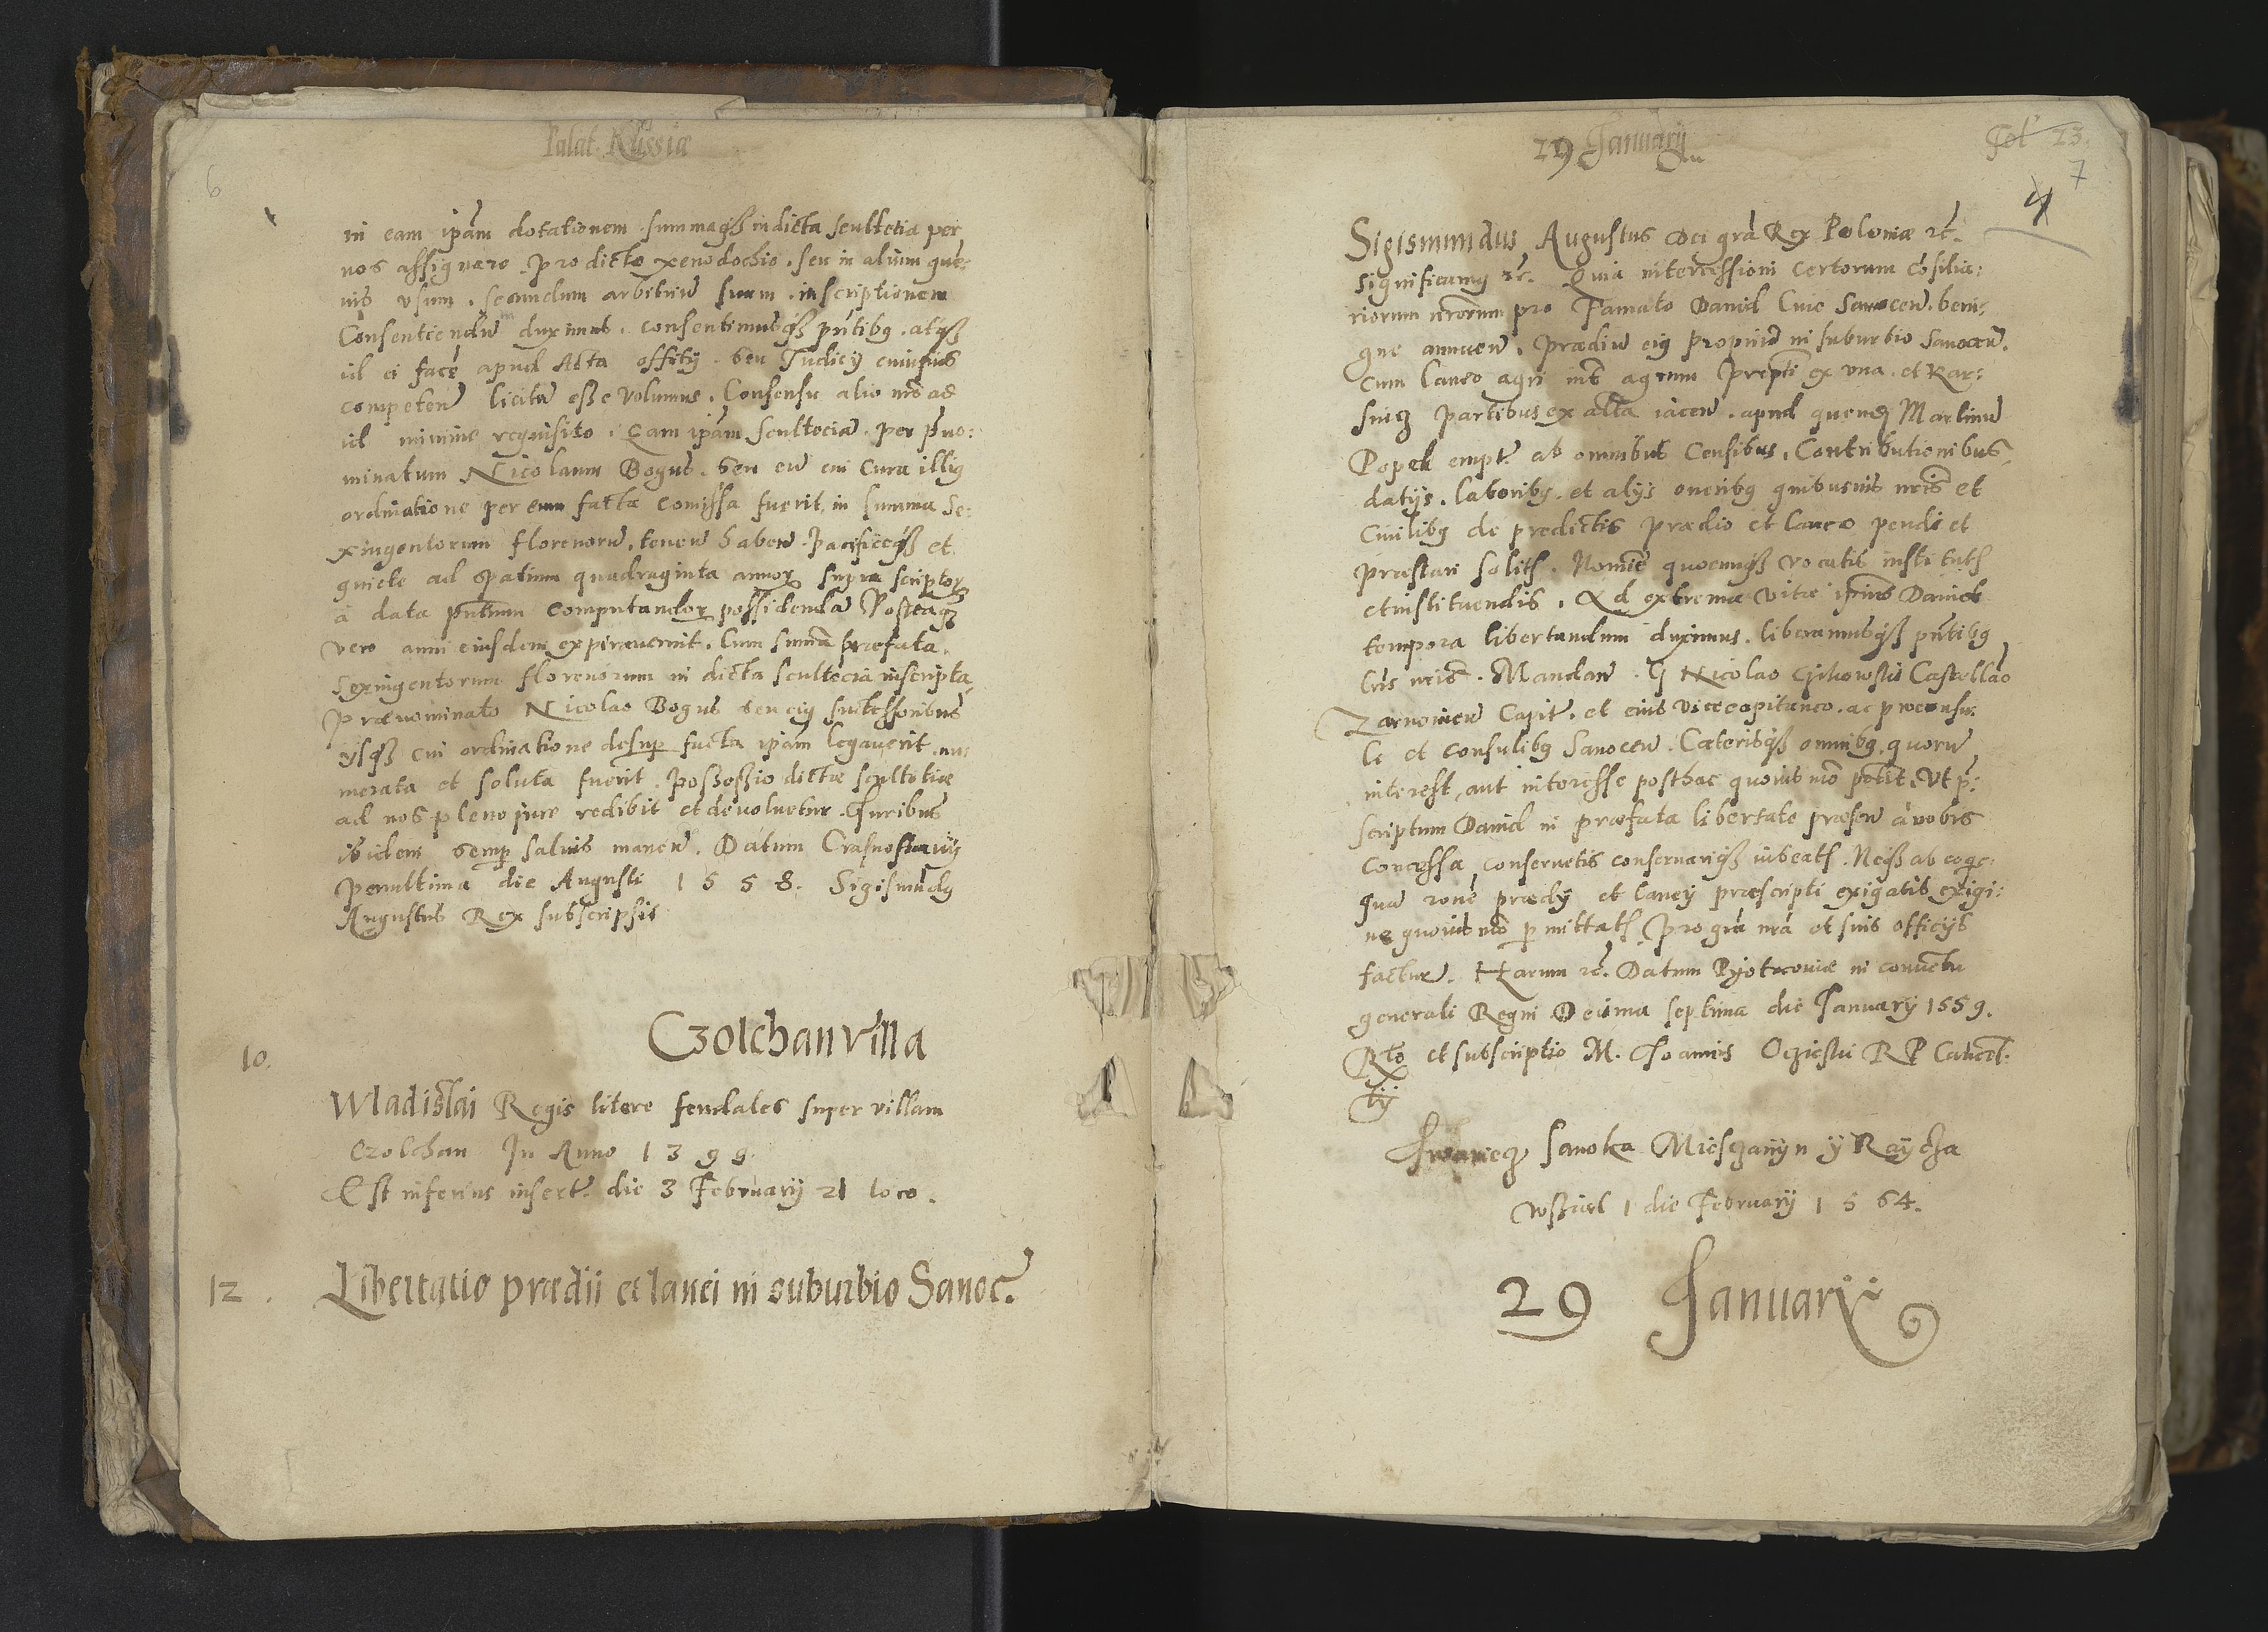 Palat. Russiæ
6
in eam ipam dotationem summaqß in dicta scultetia per
nos assignare. pro dicto xenodochio. seu in alium que:
uis vsum. secundum arbitriū suum. inscriptionem
Consentiendū duximus. consentimusqß pntibg. atqß
id ei facē apud Acta offitij. seu Judicij cuiusuis
competen licitū esse volumus. Consensu alio nro ad
id minime requisito. Eam ipam Scultetiā. per pno:
minatum Nicolaum Bogus. seu eū cui cura illig
ordinatione per eum facta comissa fuerit, in summa Se:
xingentorum florenorū. tenen haben. pacificeqß et
quiete ad spatium quadraginta annor supra scriptor
a data pntium computandor possidendā Posteaq
vero anni eiusdem expirauerint. Cum summa præfata.
sexingentorum florenorum in dicta scultetia inscripta
prænominato Nicolao Bogus seu eig successoribus
vsqß cui ordinatione desup facta ipam legauerit. nu:
merata et soluta fuerit. possessio dictæ scultetiæ
ad nos pleno jure redibit et deuoluetur. Juribus
ibidem semp saluis manen. Datum Crasnostauij
penultima die Augusti 1558. Sigismūdg
Augustus Rex subscripsit
Czolchan villa
10.
Wladislai Regis litere feudales super villam
Czolchan In Anno 1399.
Est inferius insert. die 3 February 21 loco.
12. Libertatio prædii et lanei in suburbio Sanoc.
29 January
Fol 23.
7
4
Sigismundus Augustus Dei gra Rex Poloniæ rc.
significamg rc. Quia intercessioni certorum cosilia:
riorum nrorum pro Famato Dauid Cuic Sanocen. beni:
gne annuen. Prædiū eig propriū in suburbio Sanocen.
Cum laneo agri int agrum Præpti ex vna. et Kar:
snicz partibus ex alta iacen. apud quenq Martinū
Popek empt. ab omnibus Censibus, Contributionibus,
datijs. laboribg. et alijs oneribg quibusuis nris et
Ciuilibg de predictis prædio et laneo pendi et
præstari solitß. Nomine quocunqß vocatis institutß
et instituendis. Ad extrema vitæ ipius Dauid
tempora libertandum duximus. liberamusqß pntibg
lris nris. Mandan. G Nicolao Czikowski Castellāo
Zarnouien Capit. et eius Vicecapitaneo. ac proconsu:
li et consulibg Sanocen. Cæterisqß omnibg. quorū
interest, aut interesse posthac quouis mō potit. Vt p:
scriptum Dauid in præfata libertate præsen a nobis
Concessa conseruetis conseruariqß iubeatß. Neqß ab eo qc:
quā rone prædij et laneij præscripti exigatis exigi:
ue quouis mō p mittatß. Pro gra nra et suis officijs
facturi. Harum rc. Datum Pyotrcouiæ in conuētu
generali Regni Decima septima die January 1559.
Rto et subscriptio M. Joannis Oczieski R P Cancel.
ij
Iwanicz Sanoka Miesczanyn y Raycza
wsziął 1 die February 1564.
29 January